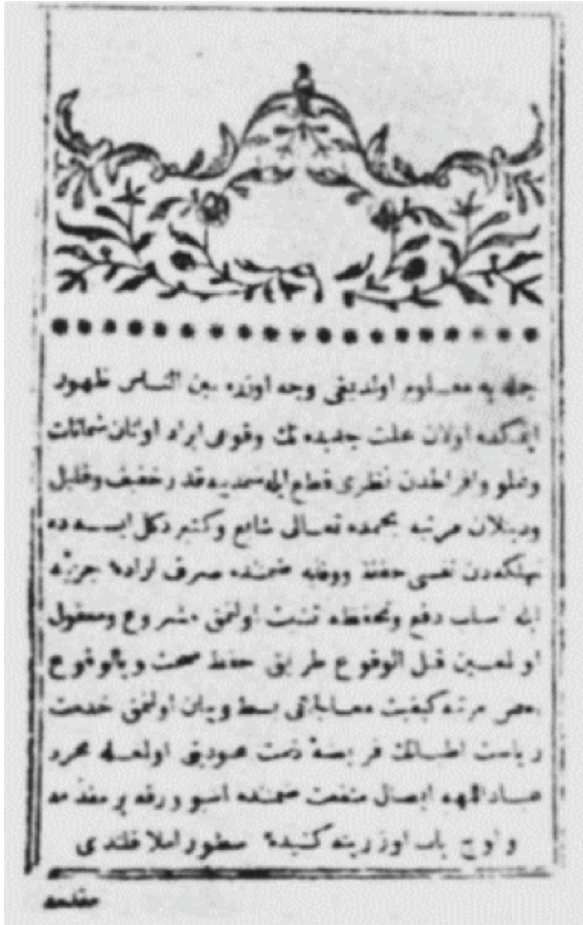 جمله يه معلوم اولديغى وجه اوزره بين الناس ظهور
ايتمكده اولان علت جديده نك وقوعى ايراد اولنان شماتات
وغلو وافراطدن نظرى قطع ايله شمديه قدر خفيف وقليل
مرتبه بحمده تعالى شايع وكثير دكل ايسه ده
تهلكه دن نفسى حفظ ووقايه ضمنده صرف اراده جزئيه
ايله اسباب دفع وتحفظه تشبث اولنمق مشروع ومعقول
اولمغين قبل الوقوع طريق حفظ صحت وبالوقوع
بعض مرتبه كيفيت معالجاتى بسط وبيان اولنمق خدمت
رياست اطبانك فريضۀ ذمت عبوديتى اولمغله مجرد
عباداللهه ايصال منفعت ضمنده اشبو ورقه بر مقدمه
واوچ باب اوزرينه كشيدۀ سطور املا قلندى
مقدمه